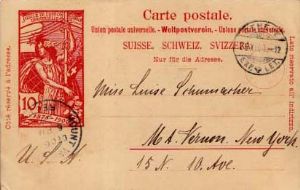 Carte postale.
Union postale universelle. - Weltpostverein. - Unione postale universale.
SUISSE. SCHWEIZ. SVIZZERA.
Nur für die Adresse.
Côté réservé à l'adresse.
Lato riservato all'indirizzo.
10
Miss Luise Schumacher
Mt. Vernon. New York.
15 N. 10. Ave.
U. S. A.
MOUNT